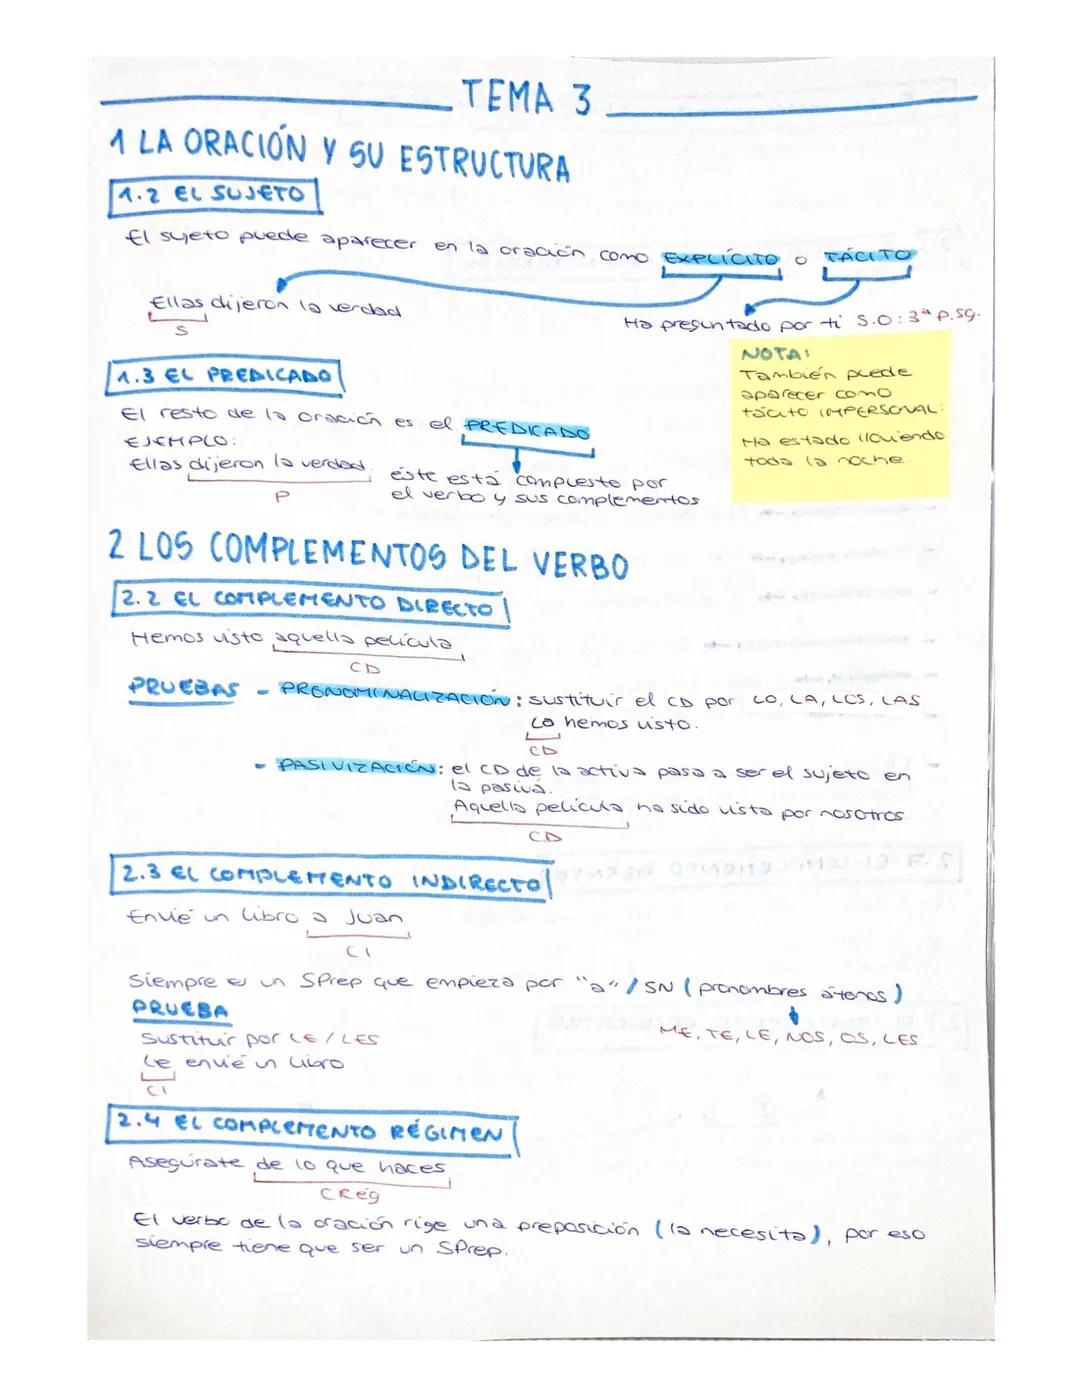 TEMA 3
1 LA ORACIÓN Y SU ESTRUCTURA
1.2 EL SUJETO
El sujeto puede aparecer en la oración como EXPLÍCITO o TÁCITO
Ellas dijeron la verdad
S
Ha preguntado por ti S.O: 3ª p.sg.
NOTA:
También puede
aparecer como
tácito IMPERSONAL:
Ha estado lloviendo
toda la noche.
1.3 EL PREDICADO
El resto de la oración es el PREDICADO
EJEMPLO:
Ellas dijeron la verdad.
P
éste está compuesto por
el verbo y sus complementos
2 LOS COMPLEMENTOS DEL VERBO
2.2 EL COMPLEMENTO DIRECTO
Hemos visto aquella película
CD
PRUEBAS - PRONOMINALIZACIÓN: sustituir el CD por LO, LA, LOS, LAS
Lo hemos visto.
CD
- PASIVIZACIÓN: el CD de la activa pasa a ser el sujeto en
la pasiva.
Aquella película ha sido vista por nosotros.
CD
2.3 EL COMPLEMENTO INDIRECTO
Envié un libro a Juan
CI
Siempre es un SPrep que empieza por "a" / SN (pronombres átonos)
PRUEBA
Sustituir por LE / LES
ME, TE, LE, NOS, OS, LES
Le envié un libro
CI
2.4 EL COMPLEMENTO RÉGIMEN
Asegúrate de lo que haces
CRég
El verbo de la oración rige una preposición (la necesita), por eso
siempre tiene que ser un SPrep.